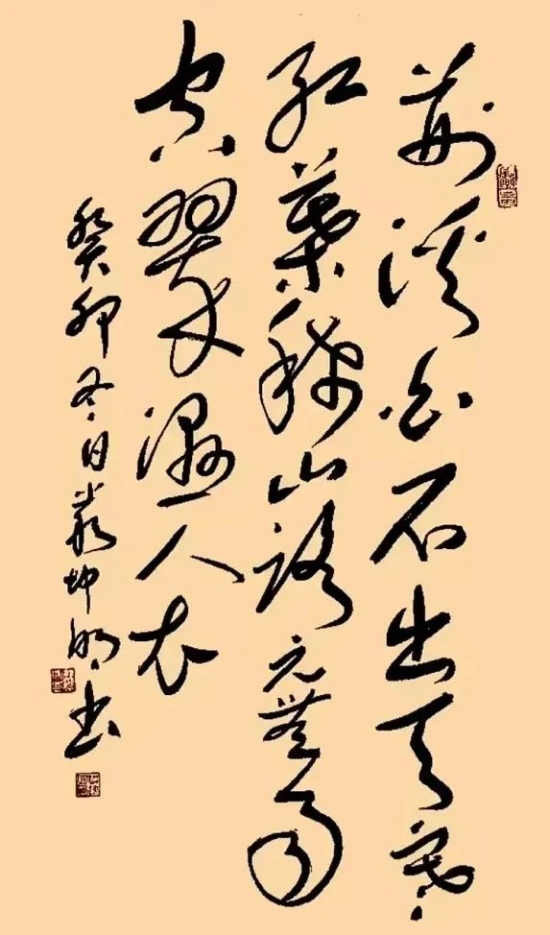 荆溪白石出天寒
红葉稀山路元無雨
空翠濕人衣
癸卯冬日嚴坤明书